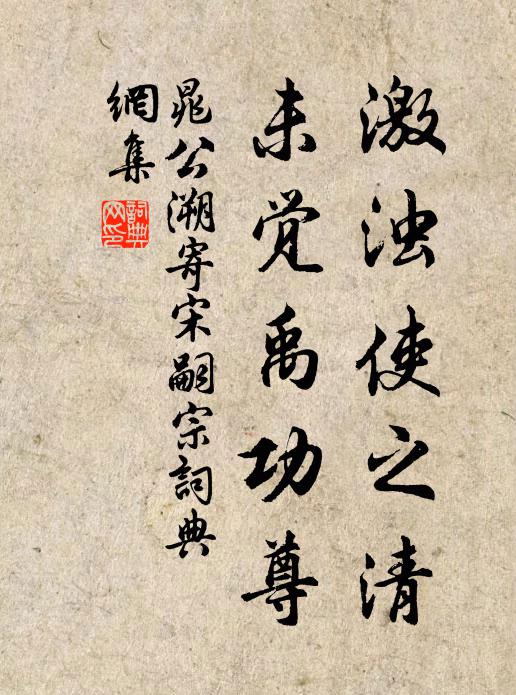 激浊使之清
未觉禹功尊
晁公溯寄宋嗣宗詞典
網集
詞典
网印